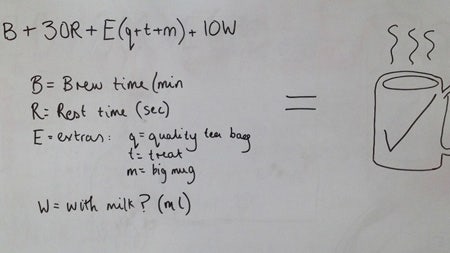 B + 30R + E(q+t+m) + 10W
B = Brew time (min
R = Rest time (sec)
E = extras: q = quality tea bags
t = treat
m = big mug
=
W = with milk? (ml)